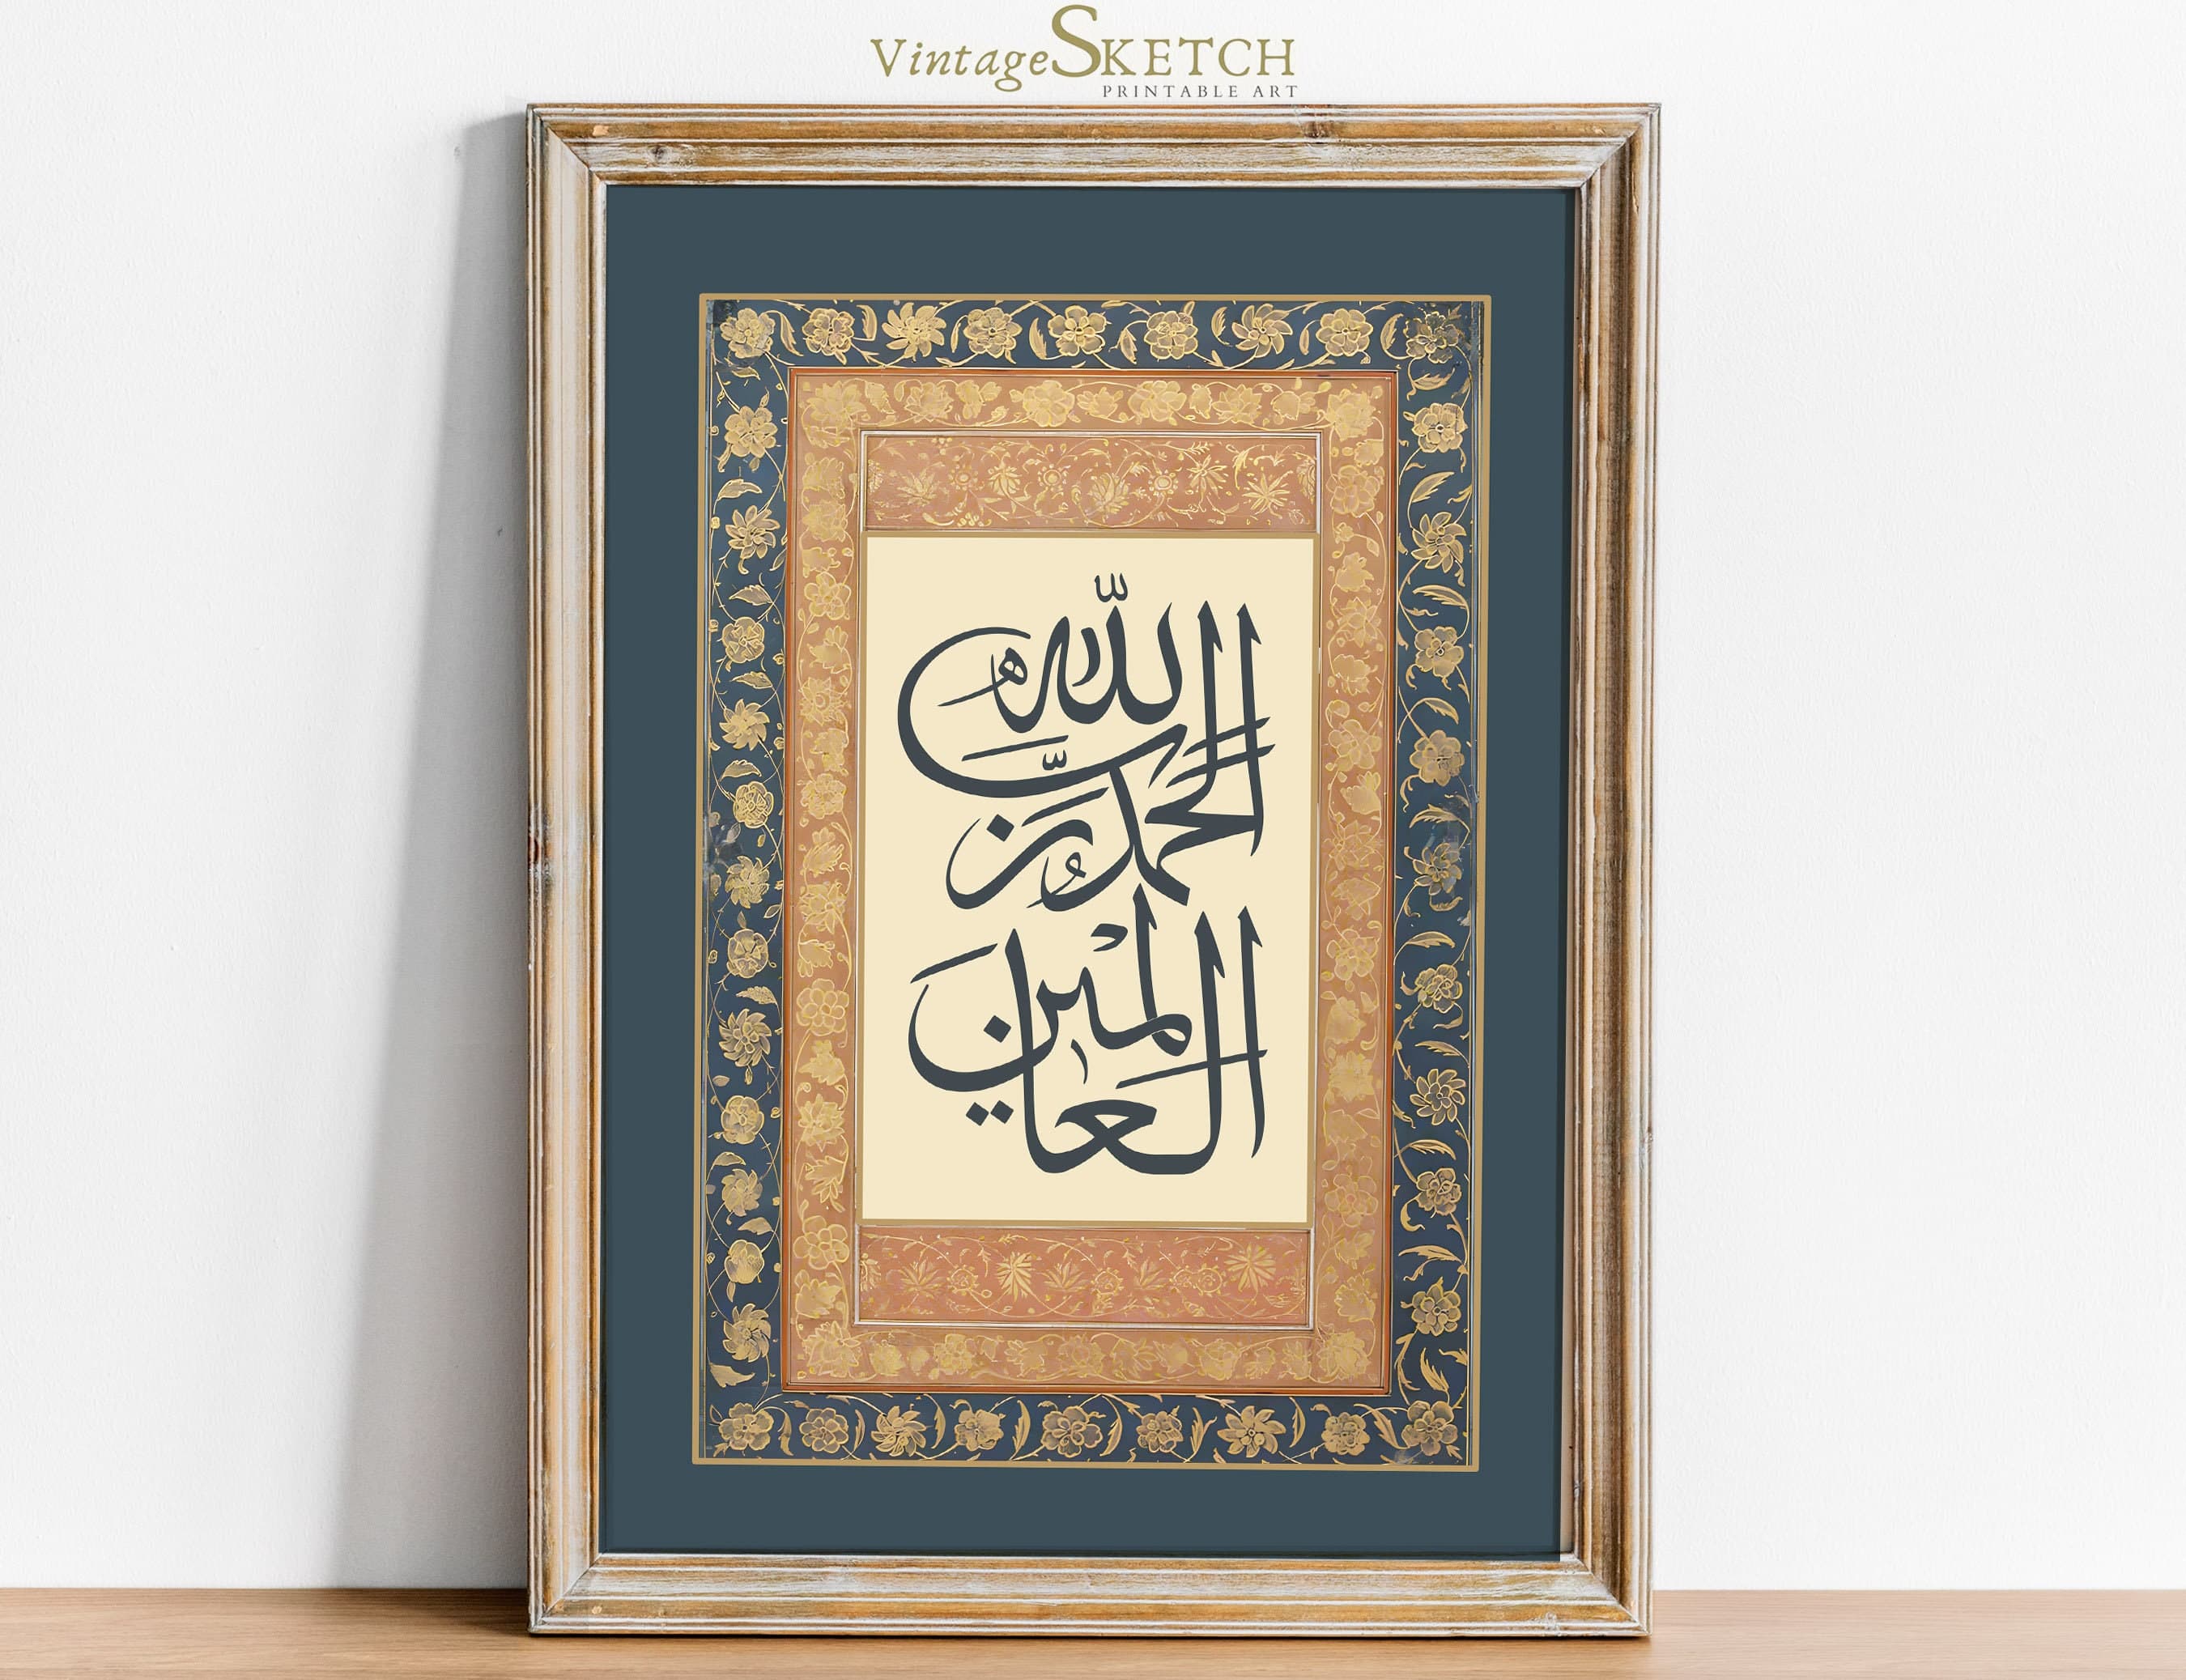 VintageSKETCH
PRINTABLE ART
الحمد لله رب العالمين